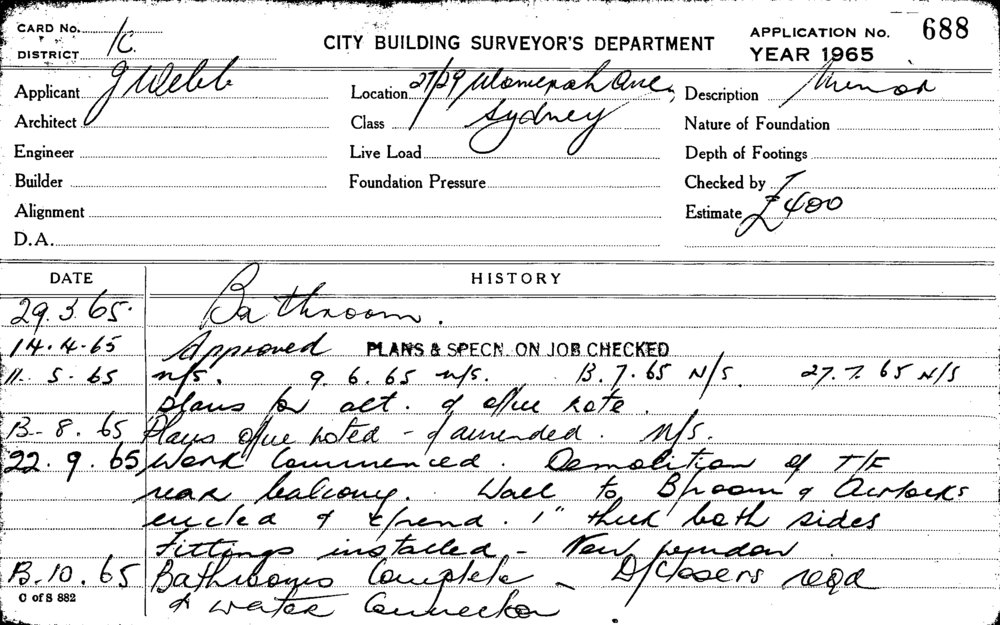 CARD No. 688
DISTRICT 1C.
CITY BUILDING SURVEYOR'S DEPARTMENT
APPLICATION No.
YEAR 1965
Applicant J Webb Location 27/29 Womerah Ave, Description Minor
Architect Class Sydney Nature of Foundation
Engineer Live Load Depth of Footings
Builder Foundation Pressure Checked by
Alignment Estimate £400
D.A.
DATE HISTORY
29.3.65. Bathroom.
14.4.65 Approved PLANS & SPECN. ON JOB CHECKED
11. 5. 65 n/s. 9. 6. 65 n/s. 13. 7. 65 N/S. 27. 7. 65 N/S
plans for alt. & note.
13. 8. 65 Plans noted - & amended. N/S.
22. 9. 65 Work Commenced. Demolition of T/F
rear balcony. Wall to B/room & Airlocks
& c/rend. 1" thick both sides
Fittings installed - New window
13. 10. 65 Bathrooms Complete - D/closers reqd
& water Connection
C of S 882